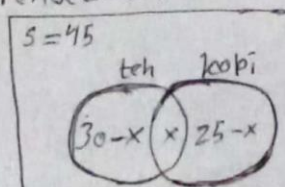 S = 45
teh kopi
30-x x 25-x